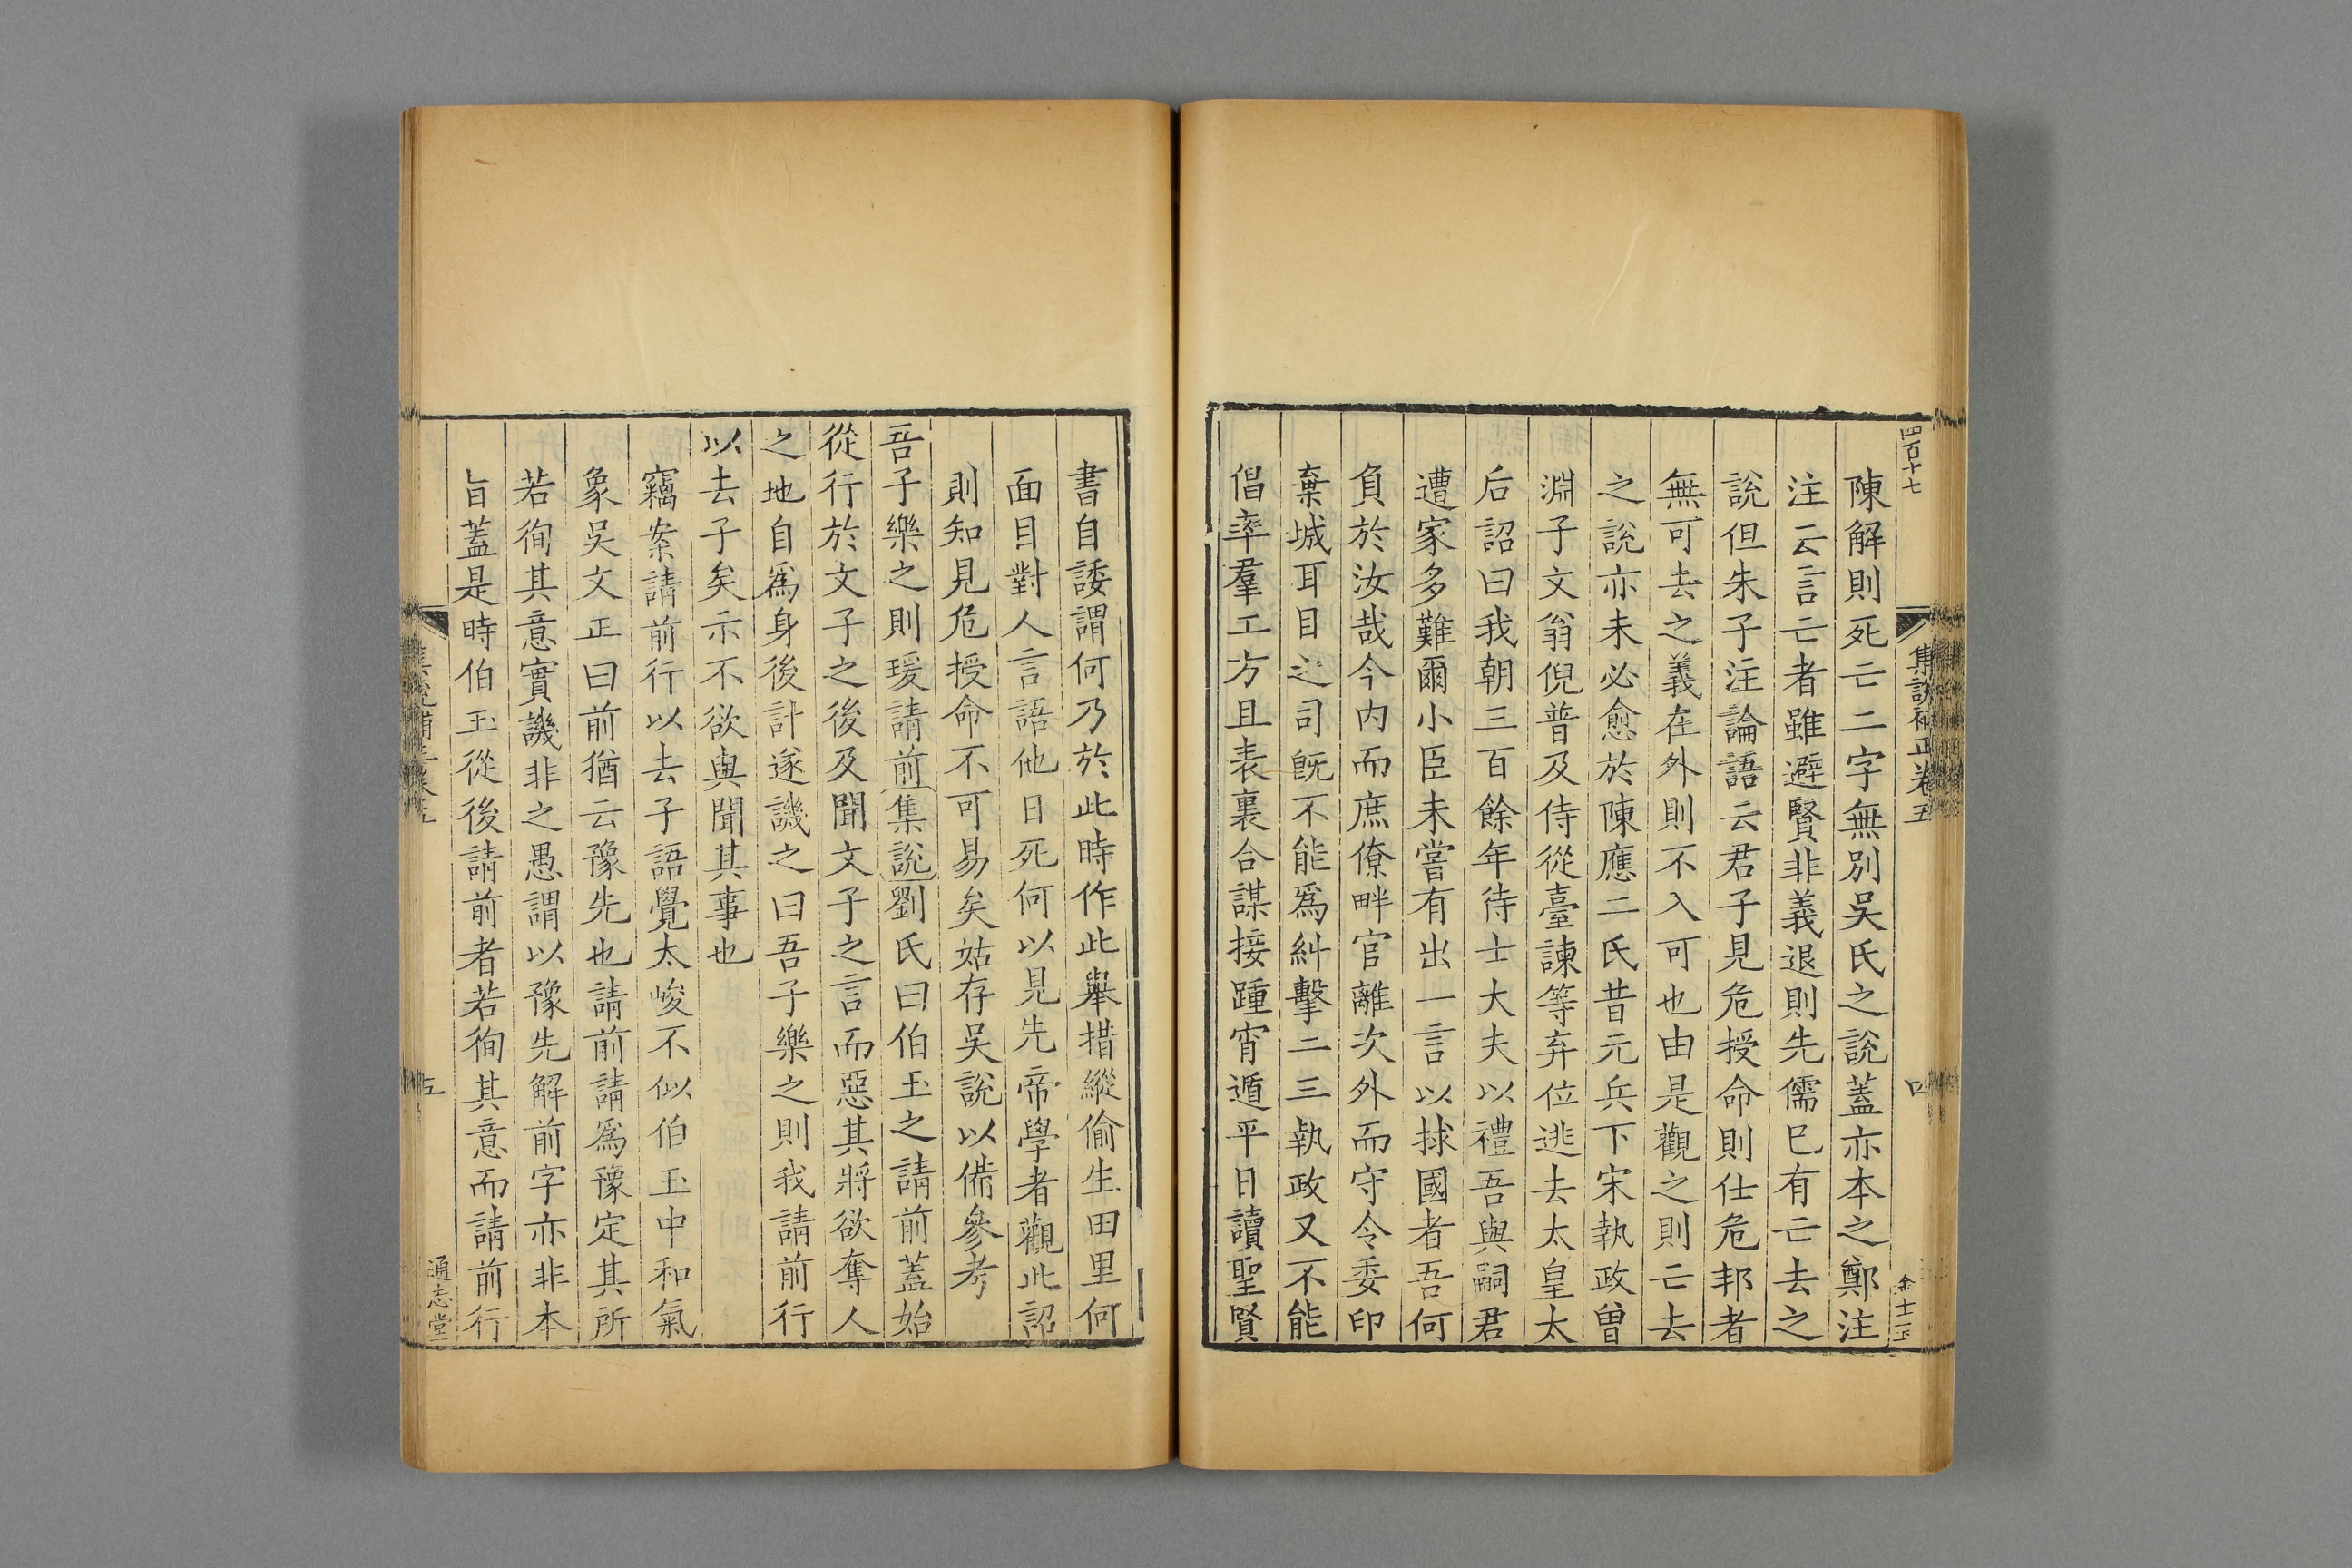 四百十七
集說補正卷五
金士玉
陳解則死亡二字無別吴氏之說蓋亦本之鄭注
注云言亡者雖避賢非義退則先儒巳有亡去之
說但朱子注論語云君子見危授命則仕危邦者
無可去之義在外則不入可也由是觀之則亡去
之說亦未必愈於陳應二氏昔元兵下宋執政曽
淵子文翁倪普及侍從臺諫等弃位逃去太皇太
后詔曰我朝三百餘年待士大夫以禮吾與嗣君
遭家多難爾小臣未嘗有出一言以捄國者吾何
負於汝哉今内而庶僚畔官離次外而守令委印
棄城耳目之司旣不能爲糾擊二三執政又不能
倡率羣工方且表裏合謀接踵宵遁平日讀聖賢
書自諉謂何乃於此時作此舉措縱偷生田里何
面目對人言語他日死何以見先帝學者觀此詔
則知見危授命不可易矣姑存吴說以備參考
吾子樂之則瑗請前集說劉氏曰伯玉之請前蓋始
從行於文子之後及聞文子之言而惡其將欲奪人
之地自爲身後計遂譏之曰吾子樂之則我請前行
以去子矣示不欲與聞其事也
竊案請前行以去子語覺太峻不似伯玉中和氣
象吴文正曰前猶云豫先也請前請爲豫定其所
若徇其意實譏非之愚謂以豫先解前字亦非本
旨蓋是時伯玉從後請前者若徇其意而請前行
五
通志堂